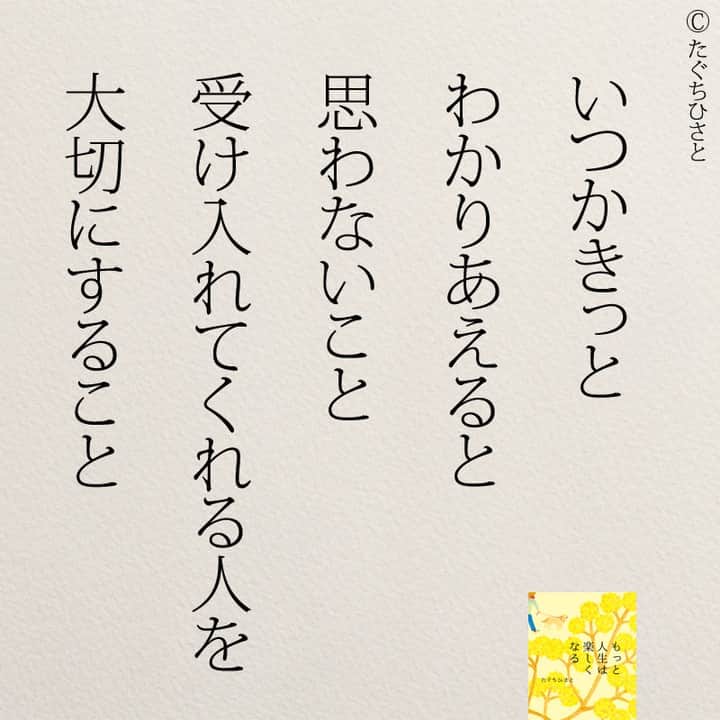 ©たぐちひさと
いつかきっと
わかりあえると
思わないこと
受け入れてくれる人を
大切にすること
もっと
人生は
楽しく
なる
たぐちひさと